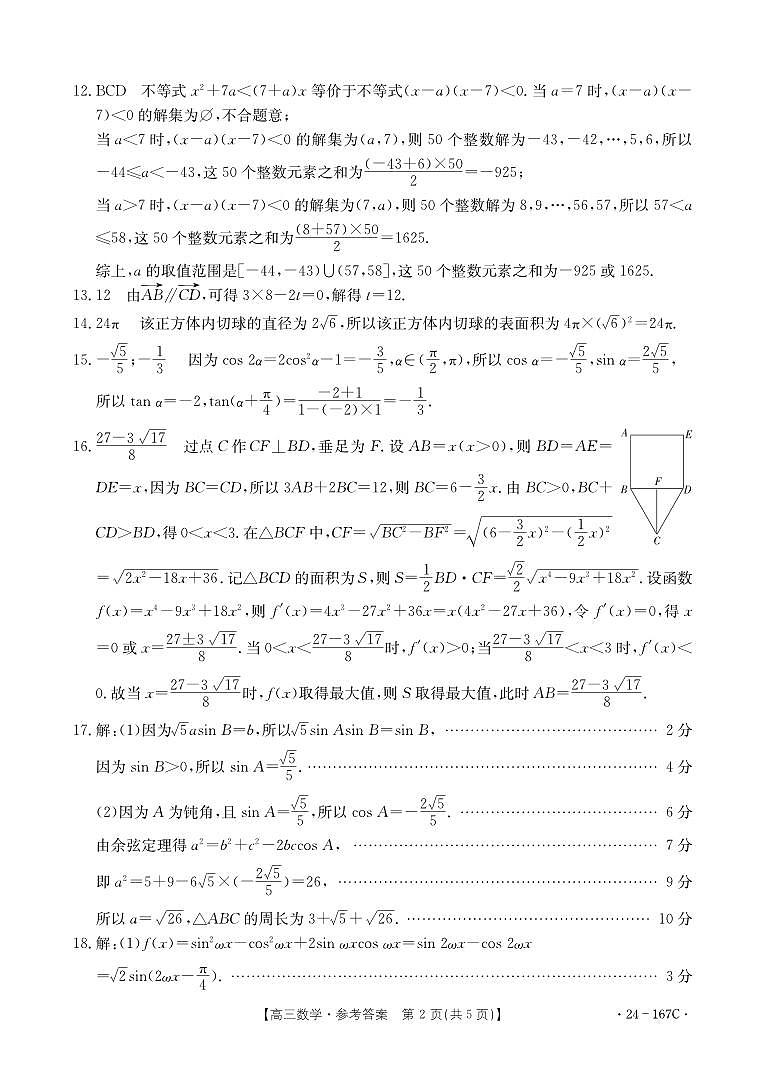 12. BCD 不等式 x²+7a<(7+a)x 等价于不等式(x−a)(x−7)<0. 当 a=7 时,(x−a)(x−
7)<0 的解集为∅,不合题意;
当 a<7 时,(x−a)(x−7)<0 的解集为(a,7),则 50 个整数解为−43,−42,…,5,6,所以
−44≤a<−43,这 50 个整数元素之和为\frac{(−43+6)×50}{2}=−925;
当 a>7 时,(x−a)(x−7)<0 的解集为(7,a),则 50 个整数解为 8,9,…,56,57,所以 57<a
≤58,这 50 个整数元素之和为\frac{(8+57)×50}{2}=1625.
综上,a 的取值范围是[−44,−43)∪(57,58],这 50 个整数元素之和为−925 或 1625.
13. 12 由\overrightarrow{AB}∥\overrightarrow{CD},可得 3×8−2t=0,解得 t=12.
14. 24π 该正方体内切球的直径为 2√6,所以该正方体内切球的表面积为 4π×(√6)²=24π.
15. −\frac{√5}{5};−\frac{1}{3} 因为 cos 2α=2cos²α−1=−\frac{3}{5},α∈(\frac{π}{2},π),所以 cos α=−\frac{√5}{5},sin α=\frac{2√5}{5},
所以 tan α=−2,tan(α+\frac{π}{4})=\frac{−2+1}{1−(−2)×1}=−\frac{1}{3}.
16. \frac{27−3√17}{8} 过点 C 作 CF⊥BD,垂足为 F. 设 AB=x(x>0),则 BD=AE=
DE=x,因为 BC=CD,所以 3AB+2BC=12,则 BC=6−\frac{3}{2}x. 由 BC>0,BC+
CD>BD,得 0<x<3. 在△BCF 中,CF=\sqrt{BC²−BF²}=\sqrt{(6−\frac{3}{2}x)²−(\frac{1}{2}x)²}
A
E
B
F
D
C
=\sqrt{2x²−18x+36}. 记△BCD 的面积为 S,则 S=\frac{1}{2}BD·CF=\frac{√2}{2}\sqrt{x⁴−9x³+18x²}. 设函数
f(x)=x⁴−9x³+18x²,则 f′(x)=4x³−27x²+36x=x(4x²−27x+36),令 f′(x)=0,得 x
=0 或 x=\frac{27±3√17}{8}. 当 0<x<\frac{27−3√17}{8}时,f′(x)>0;当\frac{27−3√17}{8}<x<3 时,f′(x)<
0. 故当 x=\frac{27−3√17}{8}时,f(x)取得最大值,则 S 取得最大值,此时 AB=\frac{27−3√17}{8}.
17. 解:(1)因为√5asin B=b,所以√5sin Asin B=sin B, …………………………………… 2 分
因为 sin B>0,所以 sin A=\frac{√5}{5}. …………………………………… 4 分
(2)因为 A 为钝角,且 sin A=\frac{√5}{5},所以 cos A=−\frac{2√5}{5}. …………………………………… 6 分
由余弦定理得 a²=b²+c²−2bccos A, …………………………………… 7 分
即 a²=5+9−6√5×(−\frac{2√5}{5})=26, …………………………………… 9 分
所以 a=√26,△ABC 的周长为 3+√5+√26. …………………………………… 10 分
18. 解:(1)f(x)=sin²ωx−cos²ωx+2sin ωxcos ωx=sin 2ωx−cos 2ωx
=√2sin(2ωx−\frac{π}{4}). …………………………………… 3 分
【高三数学·参考答案 第 2 页(共 5 页)】 ·24−167C·